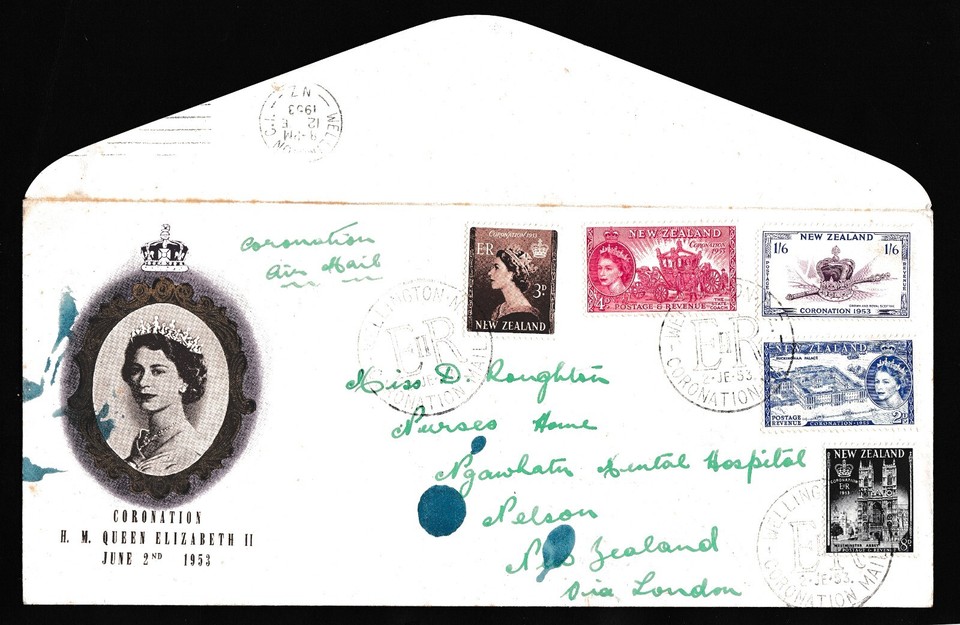 WELLINGTON C.1. - N.Z.
-PM
12 E
1953
Coronation
Air Mail
CORONATION 1953
E R
3D
NEW ZEALAND
NEW ZEALAND
Coronation 1953
4D
THE STATE COACH
POSTAGE & REVENUE
NEW ZEALAND
1/6 1/6
POSTAGE REVENUE
CROWN AND ROYAL SCEPTRE
CORONATION 1953
NEW ZEALAND
BUCKINGHAM PALACE
POSTAGE
REVENUE CORONATION 1953 2D
NEW ZEALAND
CORONATION
E R
1953
WESTMINSTER ABBEY
POSTAGE & REVENUE 8D
WELLINGTON-N.
E II R
JE
CORONATION MAIL
WELLINGTON
E II R
2-JE-53.
CORONATION MAIL
WELLINGTON
E
2-JE-53.
CORONATION MAIL
Miss D. Roughton
Nurses Home
Ngawhatu Mental Hospital
Nelson
New Zealand
Via London
CORONATION
H. M. QUEEN ELIZABETH II
JUNE 2ND 1953